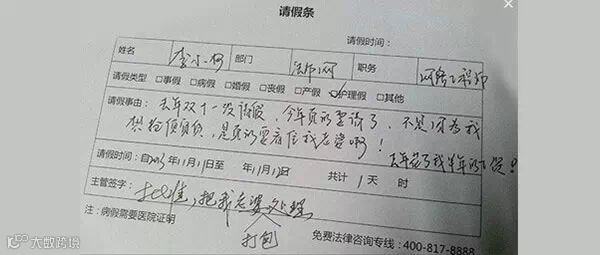 请假条
请假时间：
姓名 李小何 部门 法师网 职务 网络工程师
请假类型 □事假 □病假 □婚假 □丧假 □产假 ☑护理假 □其他
请假事由：去年双十一没请假，今年真的要请了，不是因为我
想抢便宜货，是真的要看住我老婆啊！
去年花了我半年的工资！
请假时间：自2013年11月11日至 年11月12日 共计 1 天 时
主管签字：批准，把我老婆处理
打包
注：病假需要医院证明 免费法律咨询专线：400-817-8888
大数跨境